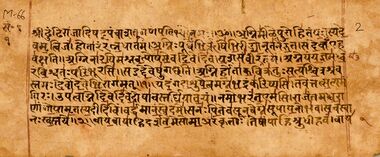 M-66
2
अग्निमीळेपुरोहितंयज्ञस्यदे
वमृत्विजं।होतारंरत्नधातमं।अग्निःपूर्वेभिर्ऋषिभिरीड्योनूतनैरुतसदेवाँएह
वक्षति।अग्निनारयिमश्नवत्पोषमेवदिवेदिवेयशसंवीरवत्तमं।अग्नेयंयज्ञमध्व
रंविश्वतःपरिभूरसि।सइद्देवेषुगच्छति।अग्निर्होताकविक्रतुःसत्यश्चित्रश्रव
स्तमःदेवोदेवेभिरागमत्॥यदंगदाशुषेत्वमग्नेभद्रंकरिष्यसितवेत्तत्सत्यमं
गिरः।उपत्वाग्नेदिवेदिवेदोषावस्तर्धियावयं।नमोभरंतएमसि।राजंतमध्वरा
णांगोपामृतस्यदीदिविंवर्धमानंस्वेदमे।सनःपितेवसूनवेग्नेसूपायनोभवसचस्वा
नःस्वस्तये॥२॥वायवायाहिदर्शतेमेसोमाअरंकृताःतेषांपाहिश्रुधीहवं।वाय